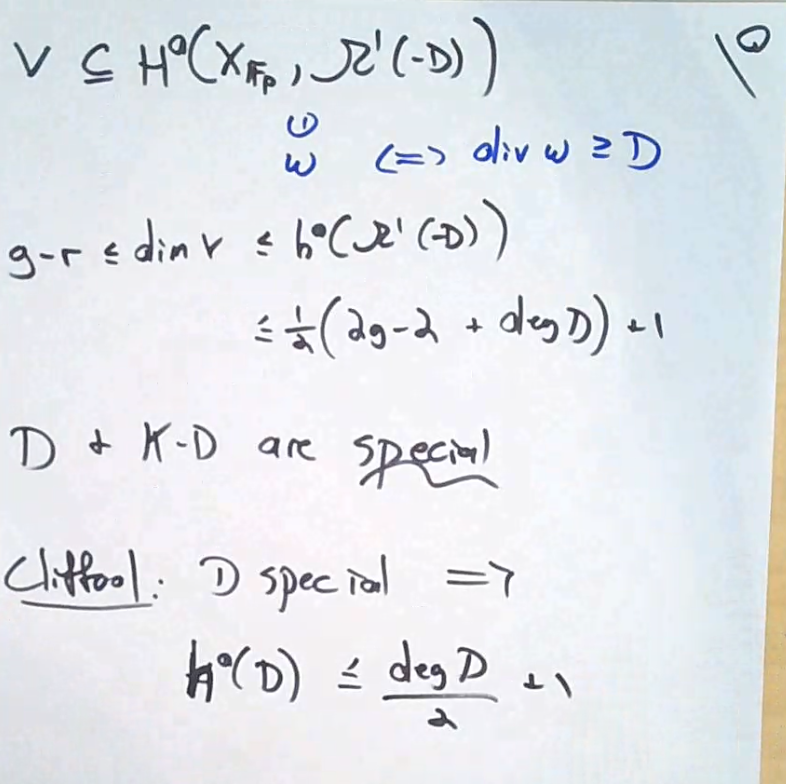 V ⊆ H⁰(X_{𝔽p}, Ω¹(-D)) 10
ω ⇔ div ω ≥ D
g-r ≤ dim V ≤ h⁰(Ω¹(-D))
≤ ½(2g-2 + deg D) + 1
D + K-D are special
Clifford: D special =>
h⁰(D) ≤ deg D / 2 + 1